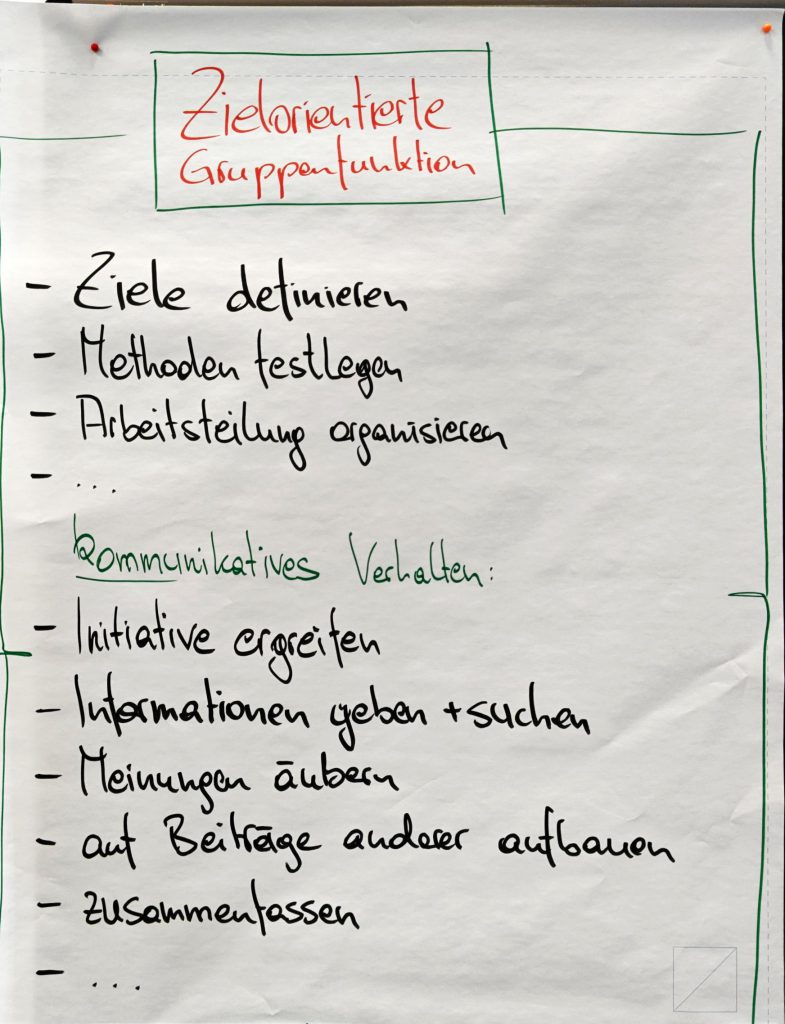 Zielorientierte
Gruppenfunktion
- Ziele definieren
- Methoden festlegen
- Arbeitsteilung organisieren
- ...
kommunikatives Verhalten:
- Initiative ergreifen
- Informationen geben + suchen
- Meinungen äußern
- auf Beiträge anderer aufbauen
- zusammenfassen
- ...